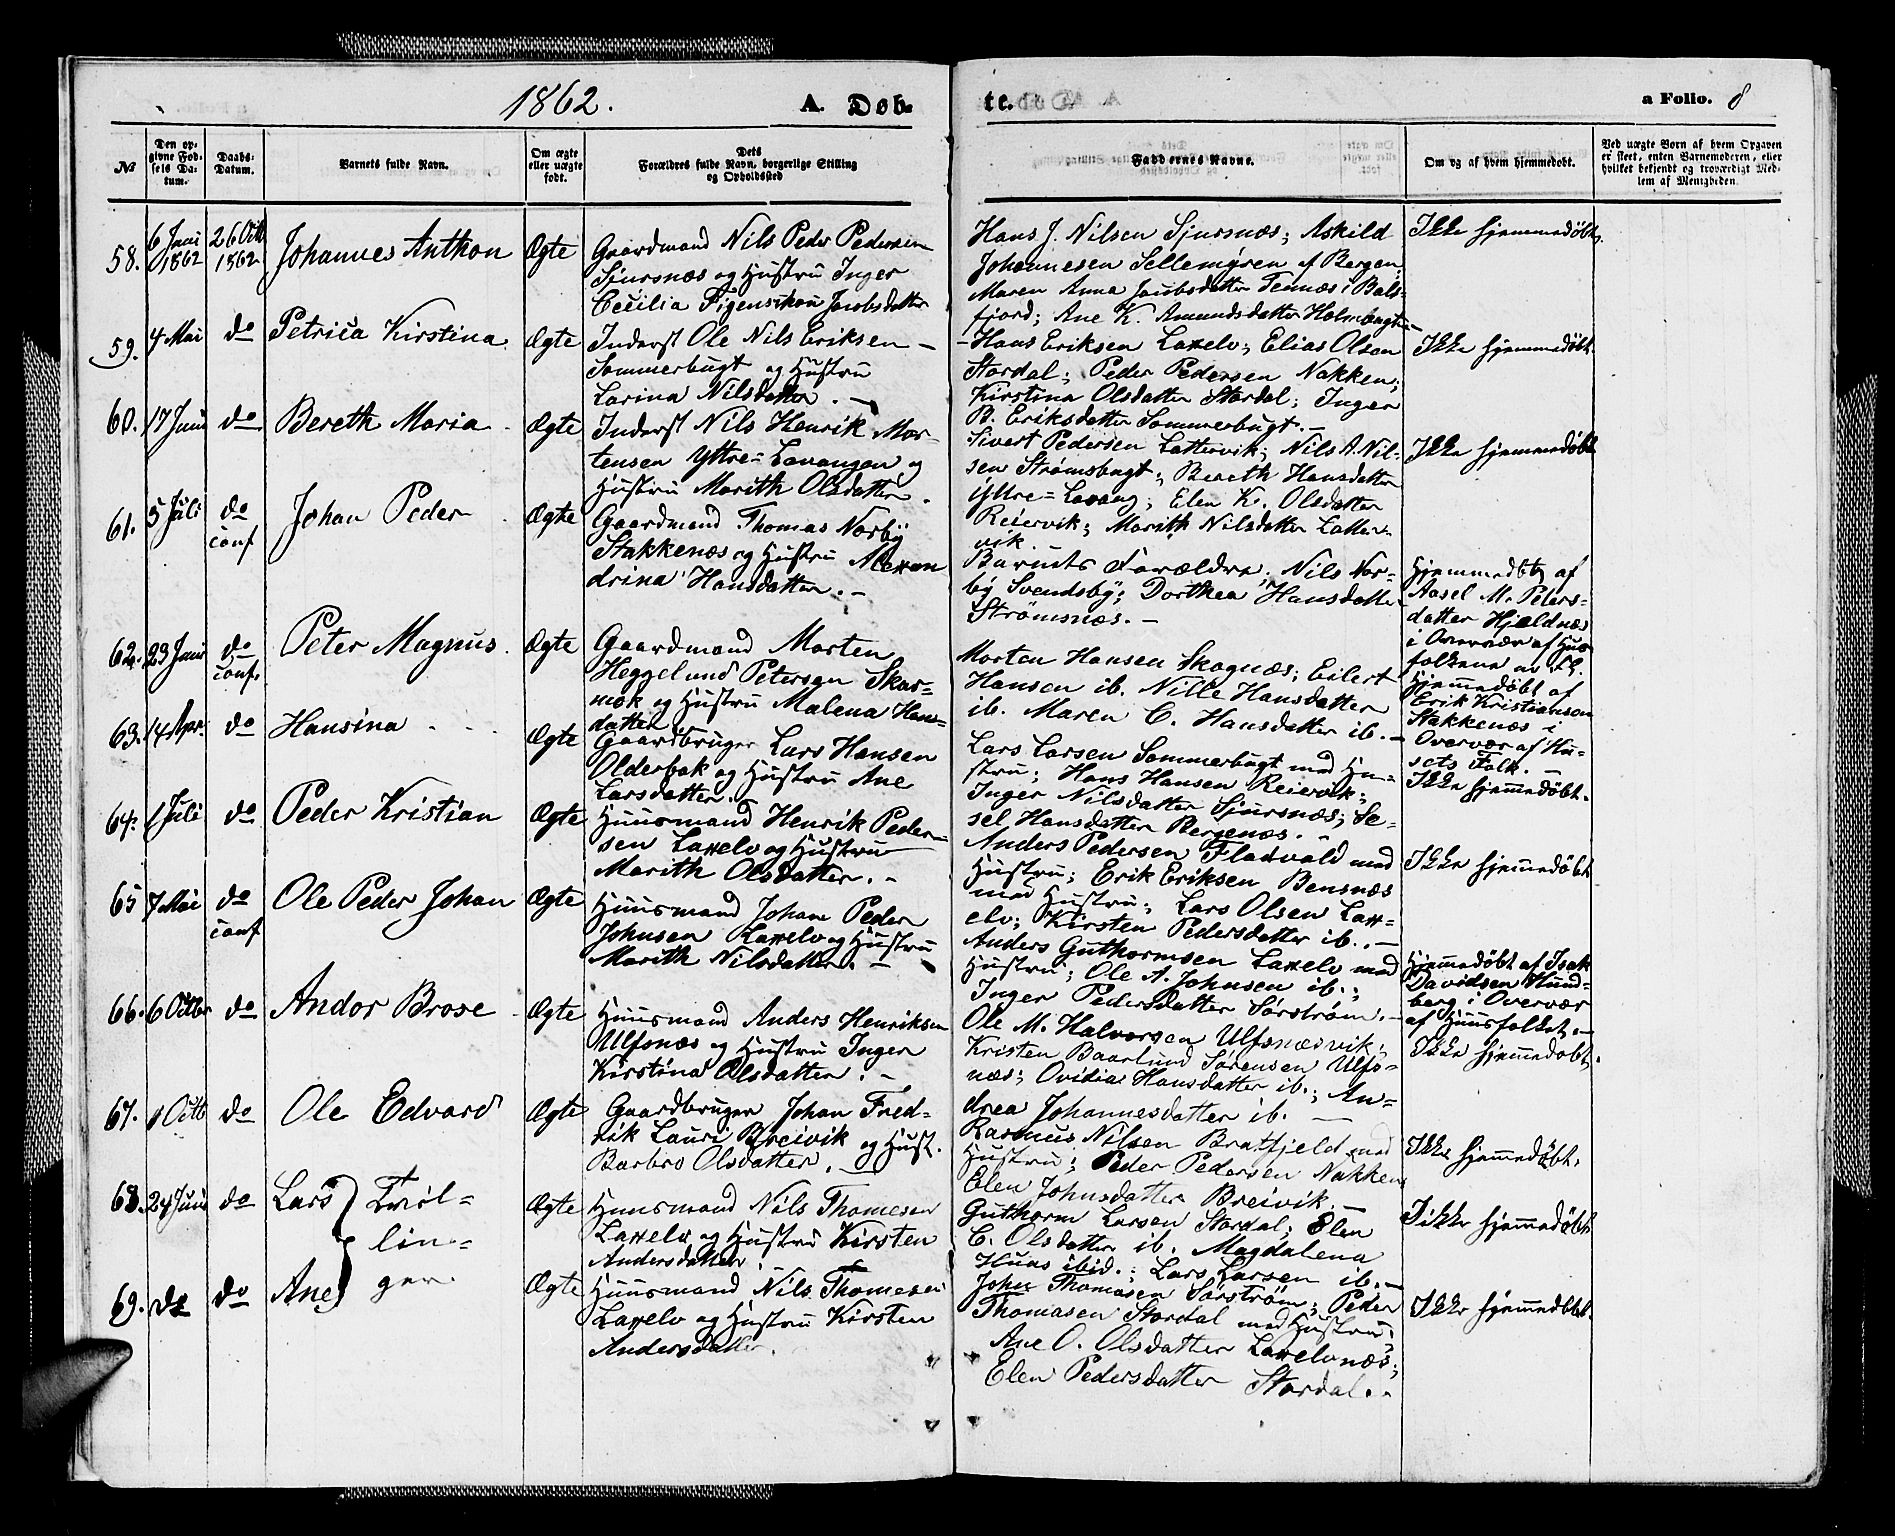 1862.
A. Døb-
№
Den op-
givne Fød-
sels Da-
tum.
Daabs-
Datum.
Barnets fulde Navn.
Om ægte
eller uægte
født.
Dets
Forældres fulde Navn, borgerlige Stilling
og Opholdssted
58.
6 Juni
1862
26 Octb
1862
Johannes Anthon
Ægte
Gaardmand Nils Peder Pedersen
Sjursnæs og Hustru Inger
Cecilia Figenschou Jacobsdatter
59.
4 Mai
do
Petrica Kirstina
Ægte
Inderst Ole Nils Eriksen –
Sommerbugt og Hustru
Larina Nilsdatter. –
60.
17 Juni
do
Bereth Maria
Ægte
Inderst Nils Henrik Mor-
tensen Yttre-Lavangen og
Hustru Marith Olsdatter.
61.
5 Juli
do
conf
Johan Peder
Ægte
Gaardmand Thomas Norby
Stakkenæs og Hustru Alexan
drina Hansdatter. –
62.
23 Juni
do
conf.
Peter Magnus.
Ægte
Gaardmand Morten
Heggelund Petersen Skar-
mok og Hustru Malena Han-
datter
63.
14 Apr.
do
Hansina
Ægte
Gaardbruger Lars Hansen
Olderbak og Hustru Ane
Larsdatter.
64.
1 Juli
do
Peder Kristian
Ægte
Huusmand Henrik Peder-
sen Laxelv og Hustru
Marith Olsdatter. –
65
7 Mai
do
conf
Ole Peder Johan
Ægte
Huusmand Johan Peder
Johnsen Laxelv og Hustru
Marith Nilsdatter. –
66.
6 Octbr
do
Andor Brose
Ægte
Huusmand Anders Henriksen
Ulfsnæs og Hustru Inger
Kirstina Olsdatter. –
67.
1 Octb
do
Ole Edvard
Ægte
Gaardbruger Johan Fred-
rik Lauri Breivik og Hust.
Barbro Olsdatter. –
68.
24 Juni
do
Lars
Tvil-
lin-
ger.
Ægte
Huusmand Nils Thomesen
Laxelv og Hustru Kirsten
Andersdatter
69.
do
do
Ane
Ægte
Huusmand Nils Thomesen
Laxelv og Hustru Kirsten
Andersdatter.
te.
a Folio. 8
Faddernes Navne.
Om og af hvem hjemmedøbt.
Ved uægte Børn af hvem Opgaven
er skeet, enten Barnemoderen, eller
hvilket bekjendt og troværdigt Med-
lem af Menigheden.
Hans J. Nilsen Sjursnæs; Askild
Johannesen Sellemyren af Bergen;
Maren Anna Jacobsdatter Tennæs i Bals-
fjord; Ane K. Amundsdatter Holmbugt –
Ikke hjemmedøbt.
– Hans Eriksen Laxelv; Elias Olsen
Stordal; Peder Pedersen Nakken;
Kirstina Olsdatter Stordal; Inger
B. Eriksdatter Sommerbugt. –
Ikke hjemmedøbt.
Sivert Pedersen Lattervik; Nils A. Nil-
sen Strømsbugt; Bereth Hansdatter
Yttre-Lavang; Elen K. Olsdatter
Reiervik; Marith Nilsdatter Latter-
vik
Ikke hjemmedøbt
Barnets Forældre. Nils Nor-
by Svendsby; Dorthea Hansdatter
Strømsnæs. –
Hjemmedøbt af
Aasel M. Peters-
datter Hjeldnæs
i Overvær af Huus
folkene
Morten Hansen Skognæs; Eilert
Hansen ib. Nille Hansdatter
ib. Maren C. Hansdatter ib. –
Hjemmedøbt af
Erik Kristiansen
Stakkenæs i
Overvær af Hu-
sets Folk. –
Lars Larsen Sommerbugt med Hu-
stru; Hans Hansen Reiervik;
Inger Nilsdatter Sjursnæs; Se-
sel Hansdatter Bergenæs. –
Ikke hjemmedøbt.
Anders Pedersen Fladvold med
Hustru; Erik Eriksen Bensnæs
med Hustru; Lars Olsen Lax-
elv; Kirsten Pedersdatter ib. –
Ikke hjemmedøbt
Anders Guthormsen Laxelv med
Hustru; Ole A. Johnsen ib.;
Inger Pedersdatter Sørstrøm. –
Hjemmedøbt af Isak
Davidsen Hund-
berg i Overvær
af Huusfolket. –
Ole M. Halvorsen Ulfsnæsvik;
Kristen Baarlund Sørensen Ulfs-
næs; Ovidia Hansdatter ib.; An-
drea Johannesdatter ib. –
Ikke hjemmedøbt.
Rasmus Nilsen Bratfjeld med
Hustru; Peder Pedersen Nakken
Elen Johnsdatter Breivik –
Ikke hjemmedøbt.
Guthorm Larsen Stordal; Elen
C. Olsdatter ib. Magdalena
Huus ibid.; Lars Larsen ib. –
Ikke hjemmedøbt
John Thomasen Sørstrøm; Peder
Thomasen Stordal med Hustru;
Ane O. Olsdatter Laxelvnæs;
Elen Pedersdatter Stordal. –
Ikke hjemmedøbt.